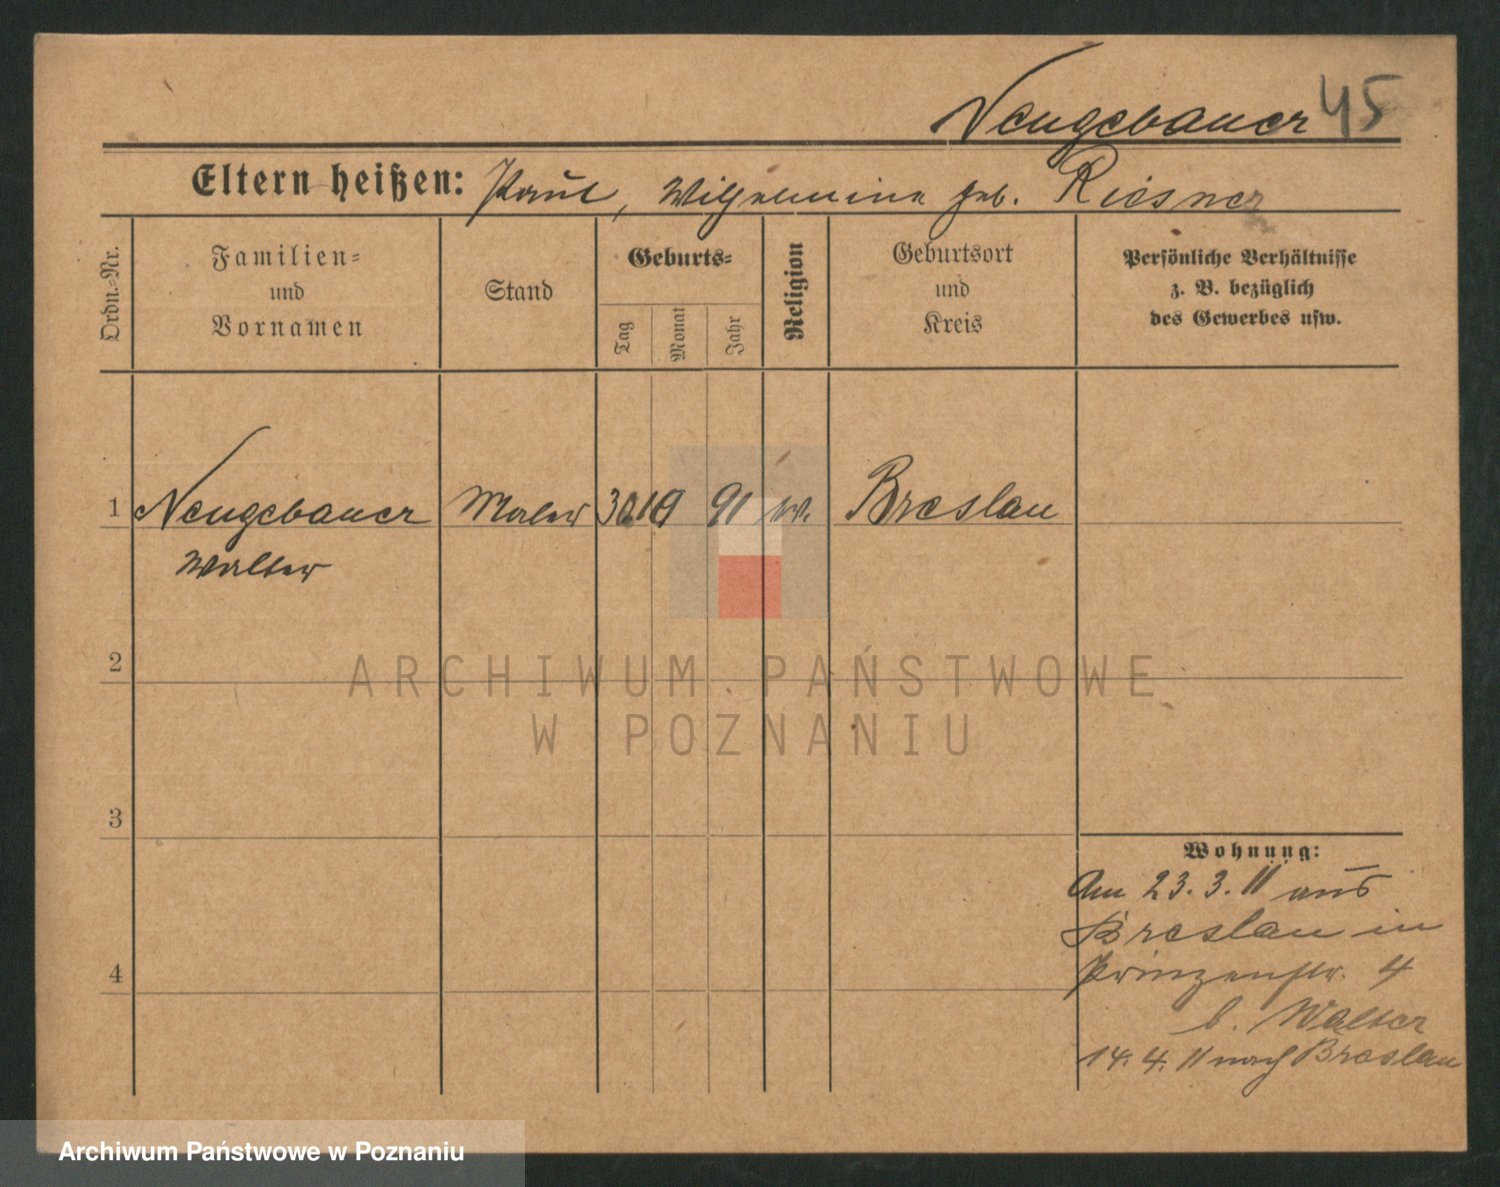 Neugebauer 45
Eltern heißen: Paul, Wilhelmine geb. Riesner
Ordn.=Nr.
Familien=
und
Vornamen
Stand
Geburts=
Tag
Monat
Jahr
Religion
Geburtsort
und
Kreis
Persönliche Verhältnisse
z. B. bezüglich
des Gewerbes usw.
1 Neugebauer Maler 30 91 Breslau
Walter
2
3
4
Wohnung:
Am 23.3.11 aus
Breslau in
Prinzenstr. 4
b. Walter
14.4.11 nach Breslau
ARCHIWUM PAŃSTWOWE
W POZNANIU
Archiwum Państwowe w Poznaniu